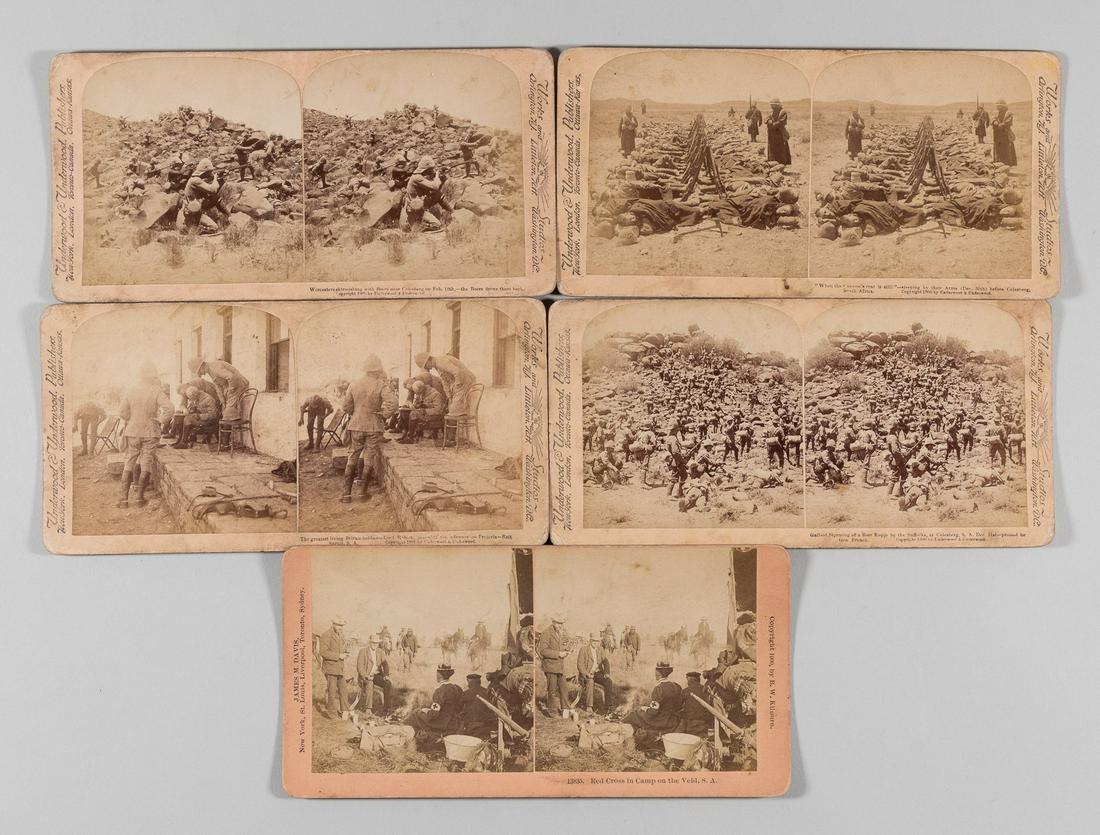 Underwood & Underwood, Publishers.
New York, London, Toronto-Canada, Ottawa-Kansas.
Works and Studios
Arlington, N.J. Littleton, N.H. Washington, D.C.
Worcesters skirmishing with Boers near Colesberg on Feb. 12th,—the Boers drove them back.
Copyright 1900 by Underwood & Underwood.
Underwood & Underwood, Publishers.
New York, London, Toronto-Canada, Ottawa-Kansas.
Works and Studios
Arlington, N.J. Littleton, N.H. Washington, D.C.
"When the cannon's roar is still"—sleeping by their Arms (Dec. 30th) before Colesberg,
South Africa.
Copyright 1900 by Underwood & Underwood.
Underwood & Underwood, Publishers.
New York, London, Toronto-Canada, Ottawa-Kansas.
Works and Studios
Arlington, N.J. Littleton, N.H. Washington, D.C.
The greatest living British soldier—Lord Roberts, the advance on Pretoria—
S. A.
Copyright 1900 by Underwood & Underwood.
Underwood & Underwood, Publishers.
New York, London, Toronto-Canada, Ottawa-Kansas.
Works and Studios
Arlington, N.J. Littleton, N.H. Washington, D.C.
Gallant Storming of a Boer Kopje by the Suffolks, at Colesberg, S. A. Dec. 31st—praised by
Gen. French.
Copyright 1900 by Underwood & Underwood.
JAMES M. DAVIS,
New York, St. Louis, Liverpool, Toronto, Sydney.
Copyright 1900, by B. W. Kilburn.
13935. Red Cross in Camp on the Veld, S. A.